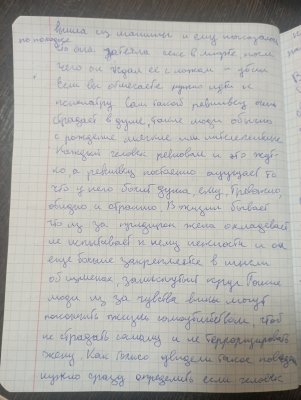 вышла из машины и ему показалось
по походке
что она завела секс в лифте, после
чего он ждал её с ножом — убил
Если вы опасаетесь нужно идти к
психиатру Вам такой ревнивец очень
страдает в душе, такие люди обычно
с рождения мягкие или интеллигентные
Каждый человек ревновал и это жуть-
ко, а ревнивец постоянно ощущает то
что у него болит душа, ему тревожно
обидно и страшно. В жизни бывает
что из за придирок жена охладевает
не испытывает к нему нежности и он
ещё больше закрепляется в мысли
об изменах, замкнутый круг. Такие
люди из за чувства вины могут
покончить жизнь самоубийством, чтоб
не страдать самому и не терроризировать
жену Как только увидели такое поведе
нужно сразу определить если человек